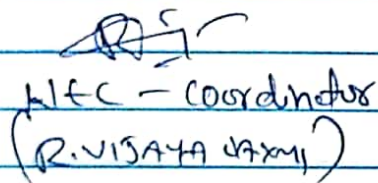 HEC - Coordinator
(R.VIJAYA LAXMI)